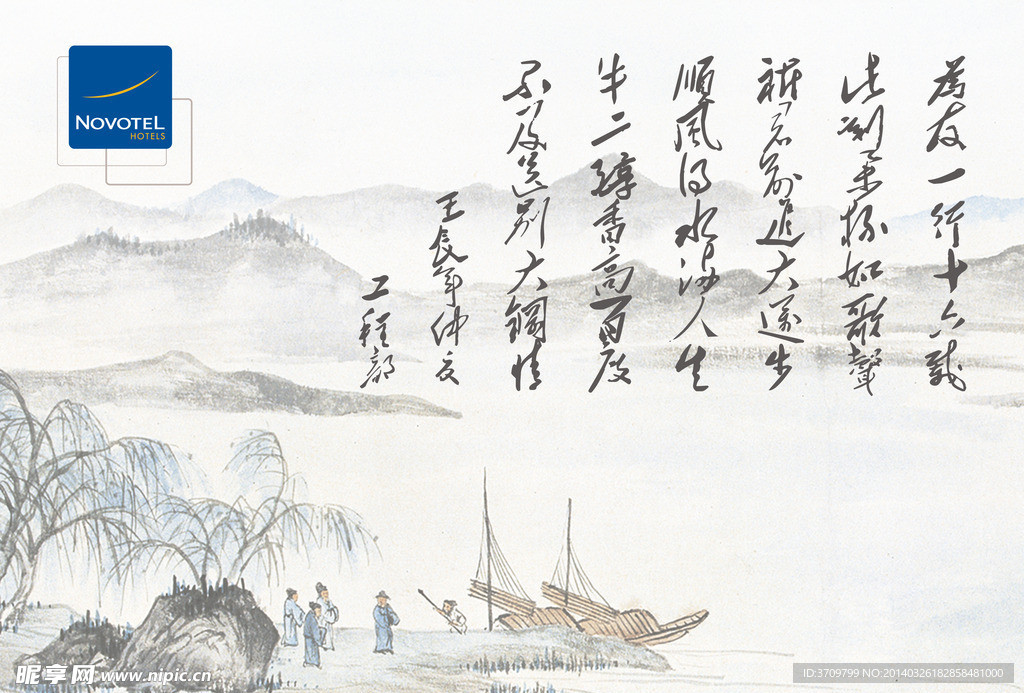 NOVOTEL
HOTELS
為友一行十六載
此刻舉杯如歌聲
君前進大步
順風得水人生
牛二醇香高百度
不及送別大鍋情
壬辰年仲夏
工程部
昵享网 www.nipic.cn
ID:3709799 NO:20140326182858481000